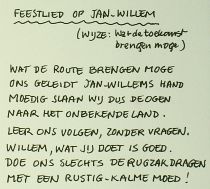 FEESTLIED OP JAN-WILLEM
(WIJZE: Wat de toekomst
brengen moge)
WAT DE ROUTE BRENGEN MOGE
ONS GELEIDT JAN-WILLEMS HAND
MOEDIG SLAAN WIJ DUS DE OGEN
NAAR HET ONBEKENDE LAND.
LEER ONS VOLGEN, ZONDER VRAGEN.
WILLEM, WAT JIJ DOET IS GOED.
DOE ONS SLECHTS DE RUGZAK DRAGEN
MET EEN RUSTIG-KALME MOED!